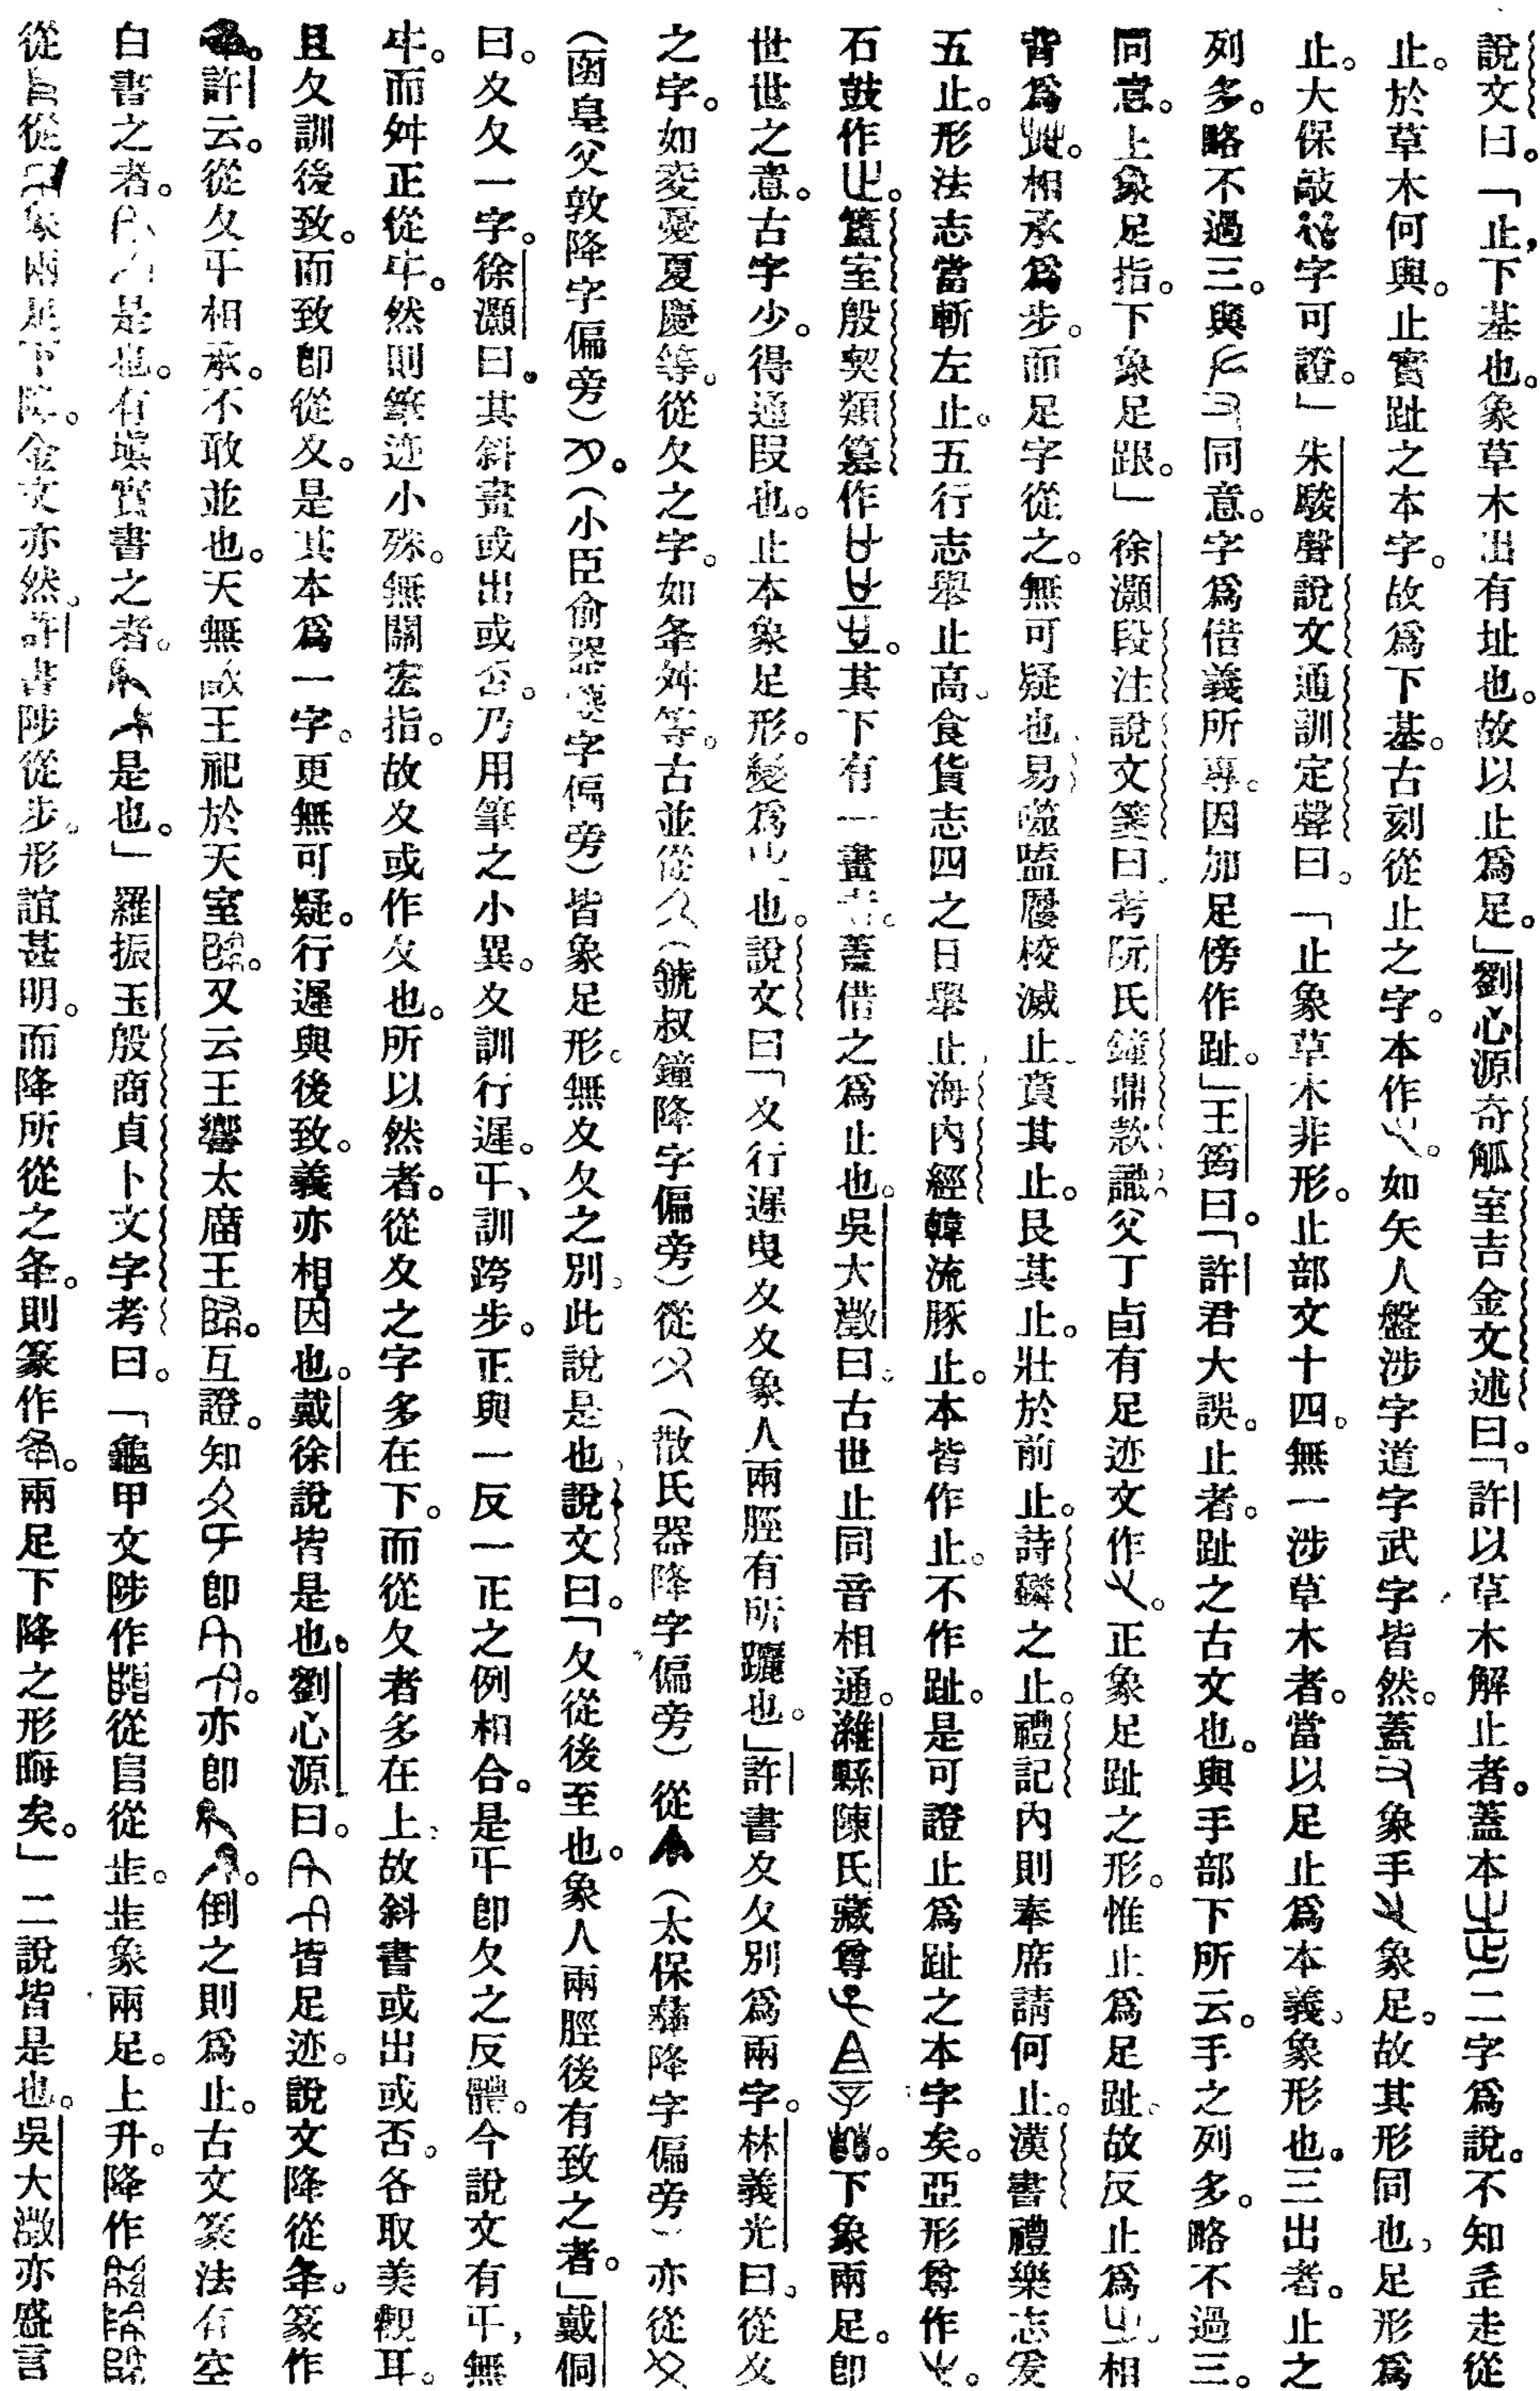 說文曰。「止，下基也。象草木出有址也。故以止爲足。」劉心源奇觚室吉金文述曰。「許以草木解止者。蓋本二字爲說。不知歪走從
止。於草木何與。止實趾之本字。故爲下基。古刻從止之字。本作。如矢人盤涉字道字武字皆然。蓋象手象足。故其形同也。足形爲
止。大保敲字可證。」朱駿聲說文通訓定聲曰。「止象草木非形。止部文十四。無一涉草木者。當以足止爲本義、象形也。三出者。止之
列多。略不過三。與同意。字爲借義所專。因加足傍作趾。」王筠曰。「許君大誤。止者。趾之古文也。與手部下所云。手之列多。略不過三。
同意。上象足指。下象足跟。」徐灝段注說文箋曰。考阮氏鐘鼎款識。父丁卣有足迹文作。正象足趾之形。惟止爲足趾、故反止爲相
背爲。相承爲步。而足字從之。無可疑也、易噬嗑屨校滅止、賁其止。艮其止。壯於前止。詩麟之止。禮記內則奉席請何止。漢書禮樂志爰
五止。形法志當斬左止。五行志舉止高。食貨志四之日舉止、海內經韓流豚止。本皆作止。不作趾。是可證止爲趾之本字矣。亞形尊作。
石鼓作。簠室殷契類纂作。其下有一畫者。蓋借之爲止也。吳大澂曰。古世止同音相通。濰縣陳氏藏尊。下象兩足。卽
世世之意。古字少。得通叚也。止本象足形。變爲也。說文曰「夊行遲曳夊夊象人兩脛有所躧也。」許書夊夂別爲兩字。林義光曰。從夊
之字。如夌憂夏慶等。從夂之字。如夅舛等。古並從（虢叔鐘降字偏旁）從（散氏器降字偏旁）從（太保彝降字偏旁）亦從
（函皇父敦降字偏旁）。（小臣俞器夔字偏旁）皆象足形。無夊夂之別。此說是也、說文曰。「夂從後至也。象人兩脛後有致之者。」戴侗
曰。夊夂一字。徐灝曰。其斜畫或出或否。乃用筆之小異。夊訓行遲。㐄、訓跨步。正與一反一正之例相合。是㐄卽夂之反體。今說文有㐄，無
㐄。而舛正從㐄。然則筆迹小殊。無關宏指。故夊或作夂也。所以然者。從夊之字多在下。而從夂者多在上、故斜書或出或否。各取美觀耳。
且夂訓後致。而致卽從夊。是其本爲一字。更無可疑。行遲與後致。義亦相因也。戴徐說皆是也。劉心源曰。皆足迹。說文降從夅。篆作
。許云。從夂㐄相承。不敢並也。天無敃王祀於天室。又云王饗太廟王。互證。知夂㐄卽。亦卽。倒之則爲止。古文篆法有空
白書之者。是也。有塡實書之者。是也。」羅振玉殷商貞卜文字考曰。「龜甲文陟作從𨸏從步。步象兩足。上升。降作
從從象兩足下降。金文亦然。許書陟從步。形誼甚明。而降所從之夅。則篆作。兩足下降之形晦矣。」二說皆是也。吳大澂亦盛言